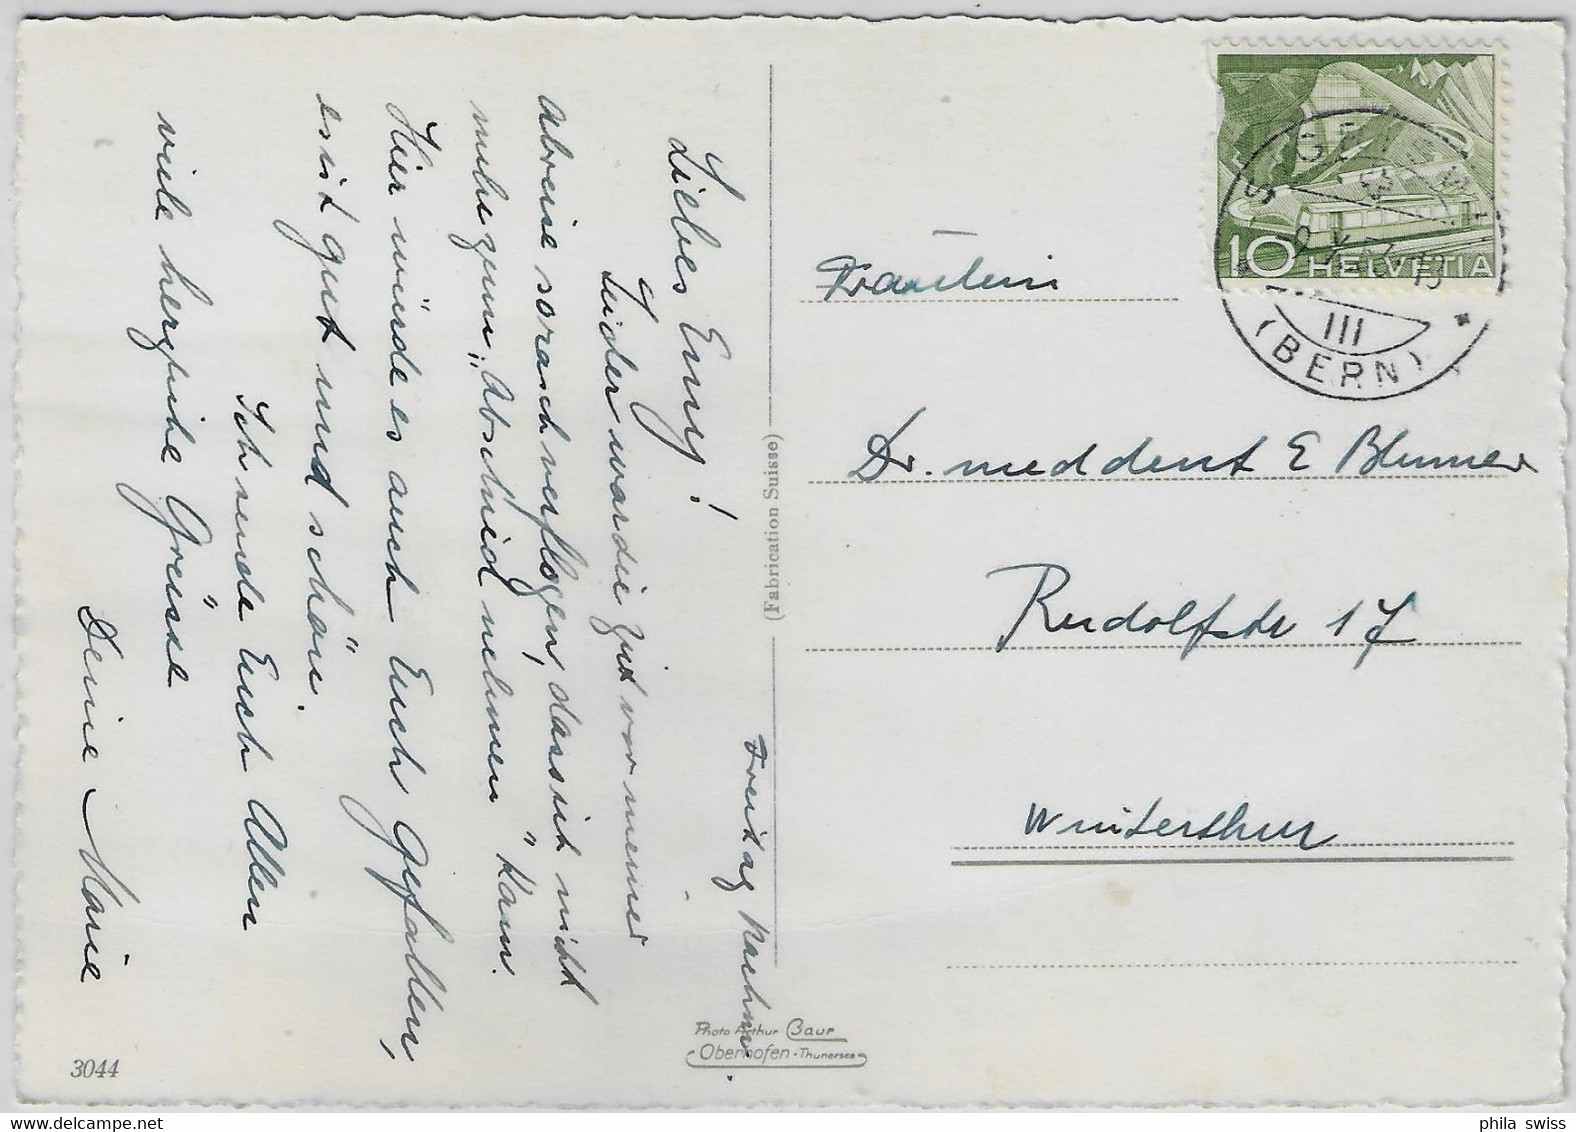 Freitag Nachm.
Liebes Emmy!
Leider war die Zeit vor meiner
Abreise so rasch verflogen, dass ich nicht
mehr zum „Abschied nehmen" kam.
Hier würde es auch Euch gefallen,
es ist gut und schön.
Ich sende Euch Allen
viele herzliche Grüsse
Deine Marie
(Fabrication Suisse)
Photo Arthur Baur
Oberhofen - Thunersee
3044
10 HELVETIA
III
(BERN)
Fräulein
Dr. med dent E Blumer
Rudolfstr 17
Winterthur
phila swiss